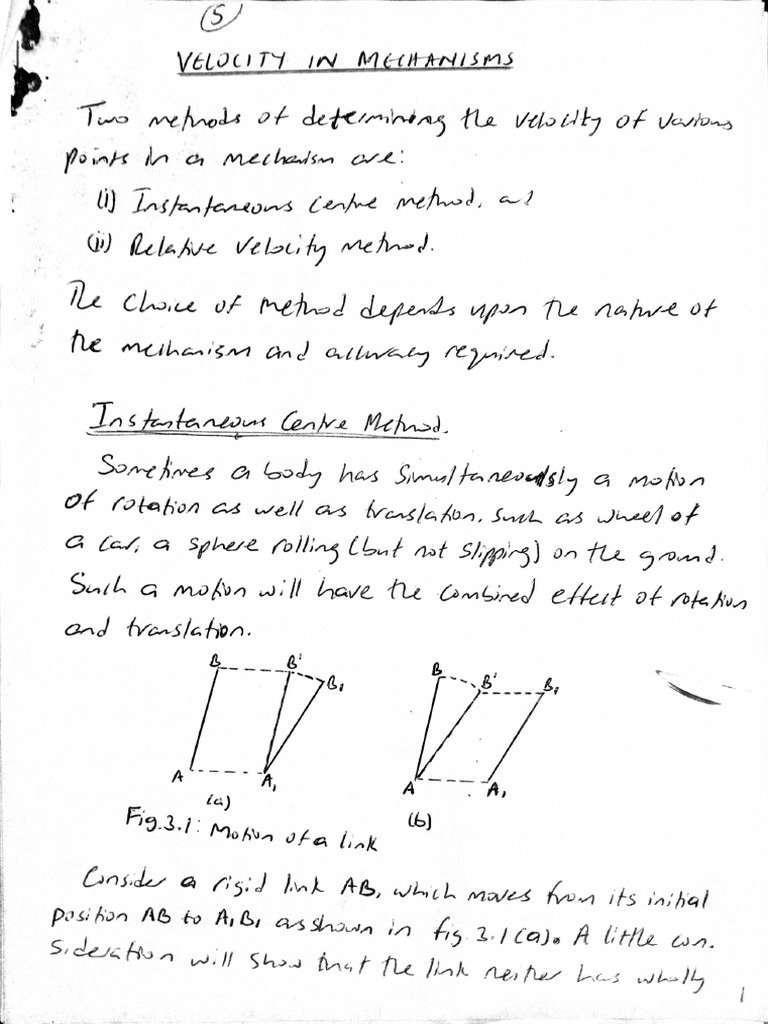 5
VELOCITY IN MECHANISMS
Two methods of determining the velocity of various
points in a mechanism are:
(i) Instantaneous Centre method, and
(ii) Relative Velocity method.
The choice of method depends upon the nature of
the mechanism and accuracy required.
Instantaneous Centre Method.
Sometimes a body has simultaneously a motion
of rotation as well as translation, such as wheel of
a car, a sphere rolling (but not slipping) on the ground.
Such a motion will have the combined effect of rotation
and translation.
B B' B₁ B B' B₁
A A₁ A A₁
(a) (b)
Fig.3.1: Motion of a link
Consider a rigid link AB, which moves from its initial
position AB to A₁B₁ as shown in fig.3.1(a). A little con-
sideration will show that the link neither has wholly
1